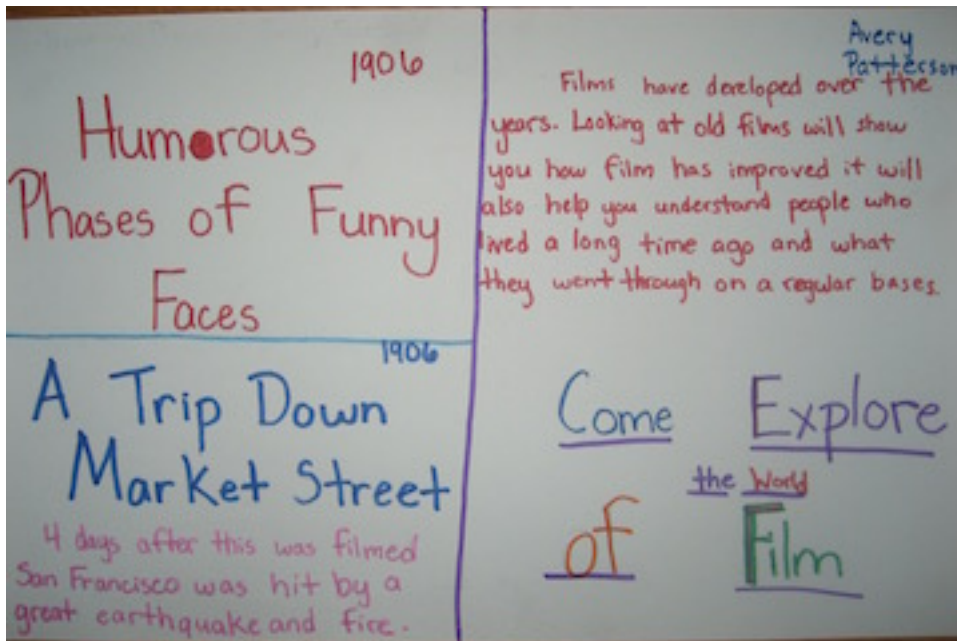 1906
Humorous
Phases of Funny
Faces
1906
A Trip Down
Market Street
4 days after this was filmed
San Francisco was hit by a
great earthquake and fire.
Avery
Patterson
Films have developed over the
years. Looking at old films will show
you how film has improved it will
also help you understand people who
lived a long time ago and what
they went through on a regular bases.
Come Explore
the World
of Film